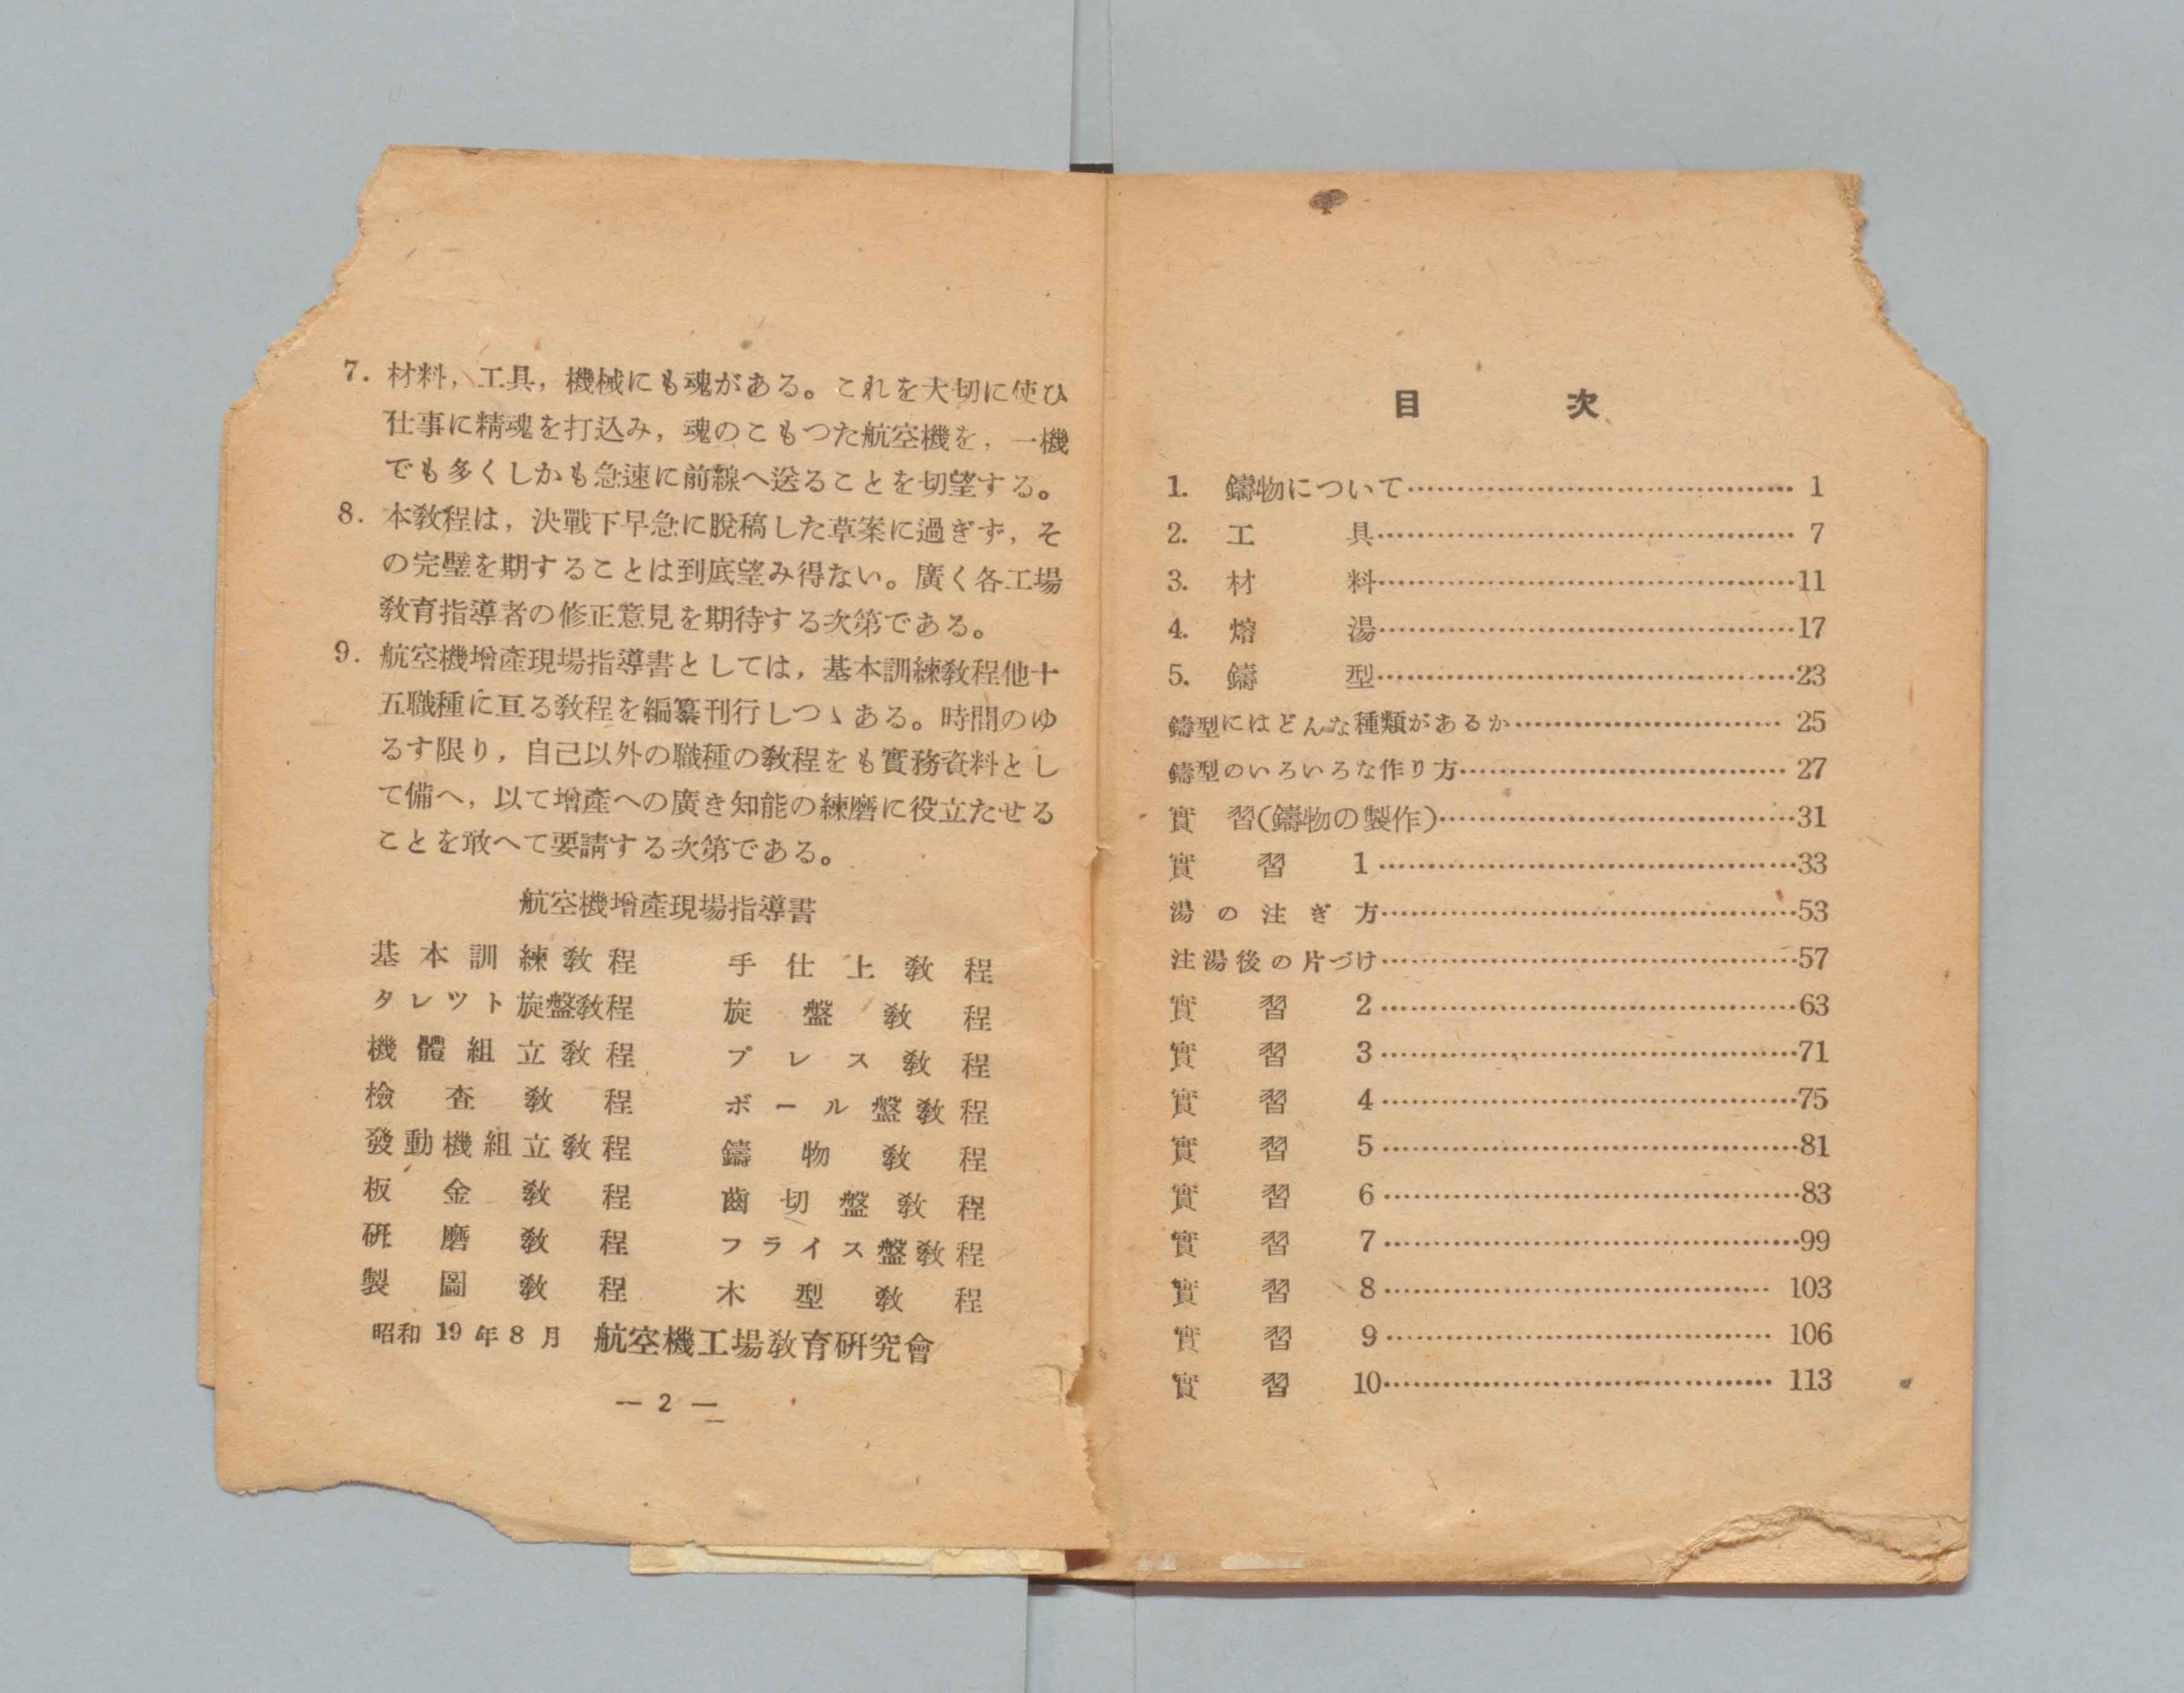 7. 材料，工具，機械にも魂がある。これを大切に使ひ
仕事に精魂を打込み，魂のこもつた航空機を，一機
でも多くしかも急速に前線へ送ることを切望する。
8. 本教程は，決戰下早急に脫稿した草案に過ぎず，そ
の完璧を期することは到底望み得ない。廣く各工場
教育指導者の修正意見を期待する次第である。
9. 航空機增產現場指導書としては，基本訓練教程他十
五職種に亘る教程を編纂刊行しつゝある。時間のゆ
るす限り，自己以外の職種の教程をも實務資料とし
て備へ，以て增產への廣き知能の練磨に役立たせる
ことを敢へて要請する次第である。
航空機增產現場指導書
基本訓練教程 手仕上教程
タレツト旋盤教程 旋盤教程
機體組立教程 プレス教程
檢査教程 ボール盤教程
發動機組立教程 鑄物教程
板金教程 齒切盤教程
硏磨教程 フライス盤教程
製圖教程 木型教程
昭和19年8月 航空機工場教育硏究會
— 2 —
目次
1. 鑄物について…………………………………… 1
2. 工具…………………………………… 7
3. 材料……………………………………11
4. 熔湯……………………………………17
5. 鑄型……………………………………23
鑄型にはどんな種類があるか………………………… 25
鑄型のいろいろな作り方……………………………… 27
實習(鑄物の製作)…………………………………31
實習 1……………………………………33
湯の注ぎ方……………………………………53
注湯後の片づけ……………………………………57
實習 2……………………………………63
實習 3……………………………………71
實習 4……………………………………75
實習 5……………………………………81
實習 6……………………………………83
實習 7……………………………………99
實習 8…………………………………… 103
實習 9…………………………………… 106
實習 10…………………………………… 113